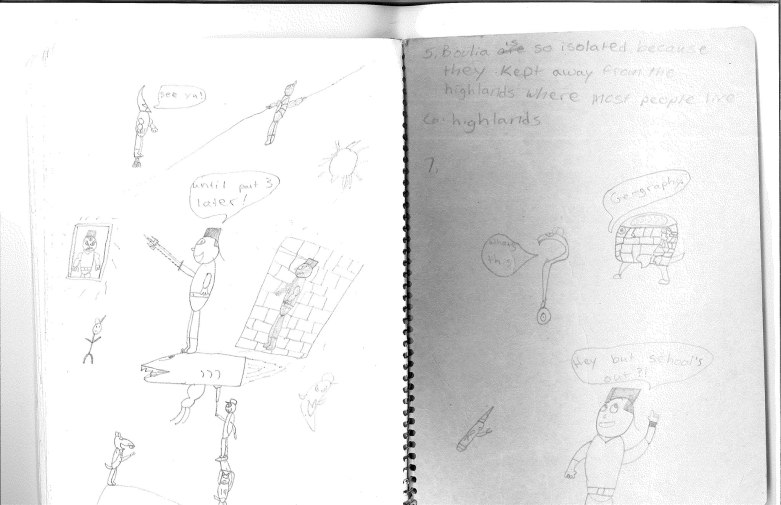 see ya!
until part 3
later!
???
5. Bodlia are is so isolated because
they kept away from the
highlands where most people live
6. highlands
7.
Geography
whats
this
Hey but school's
out?!